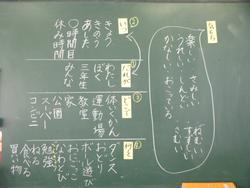 気もち
楽しい さみしい
うれしい しんどい
かなしい おこっている
ねむい
さむい
②
いつ
きょう
きのう
あした
○時間目
休み時間
①
だれが
わたし
ぼく
三年生
みんな
③
どこで
体いくかん
運動場
教室
家
公園
スーパー
コンビニ
④
何を
ダンス
おどり
ボール遊び
おにごっこ
なわとび
勉強
ねる
食べる
買い物